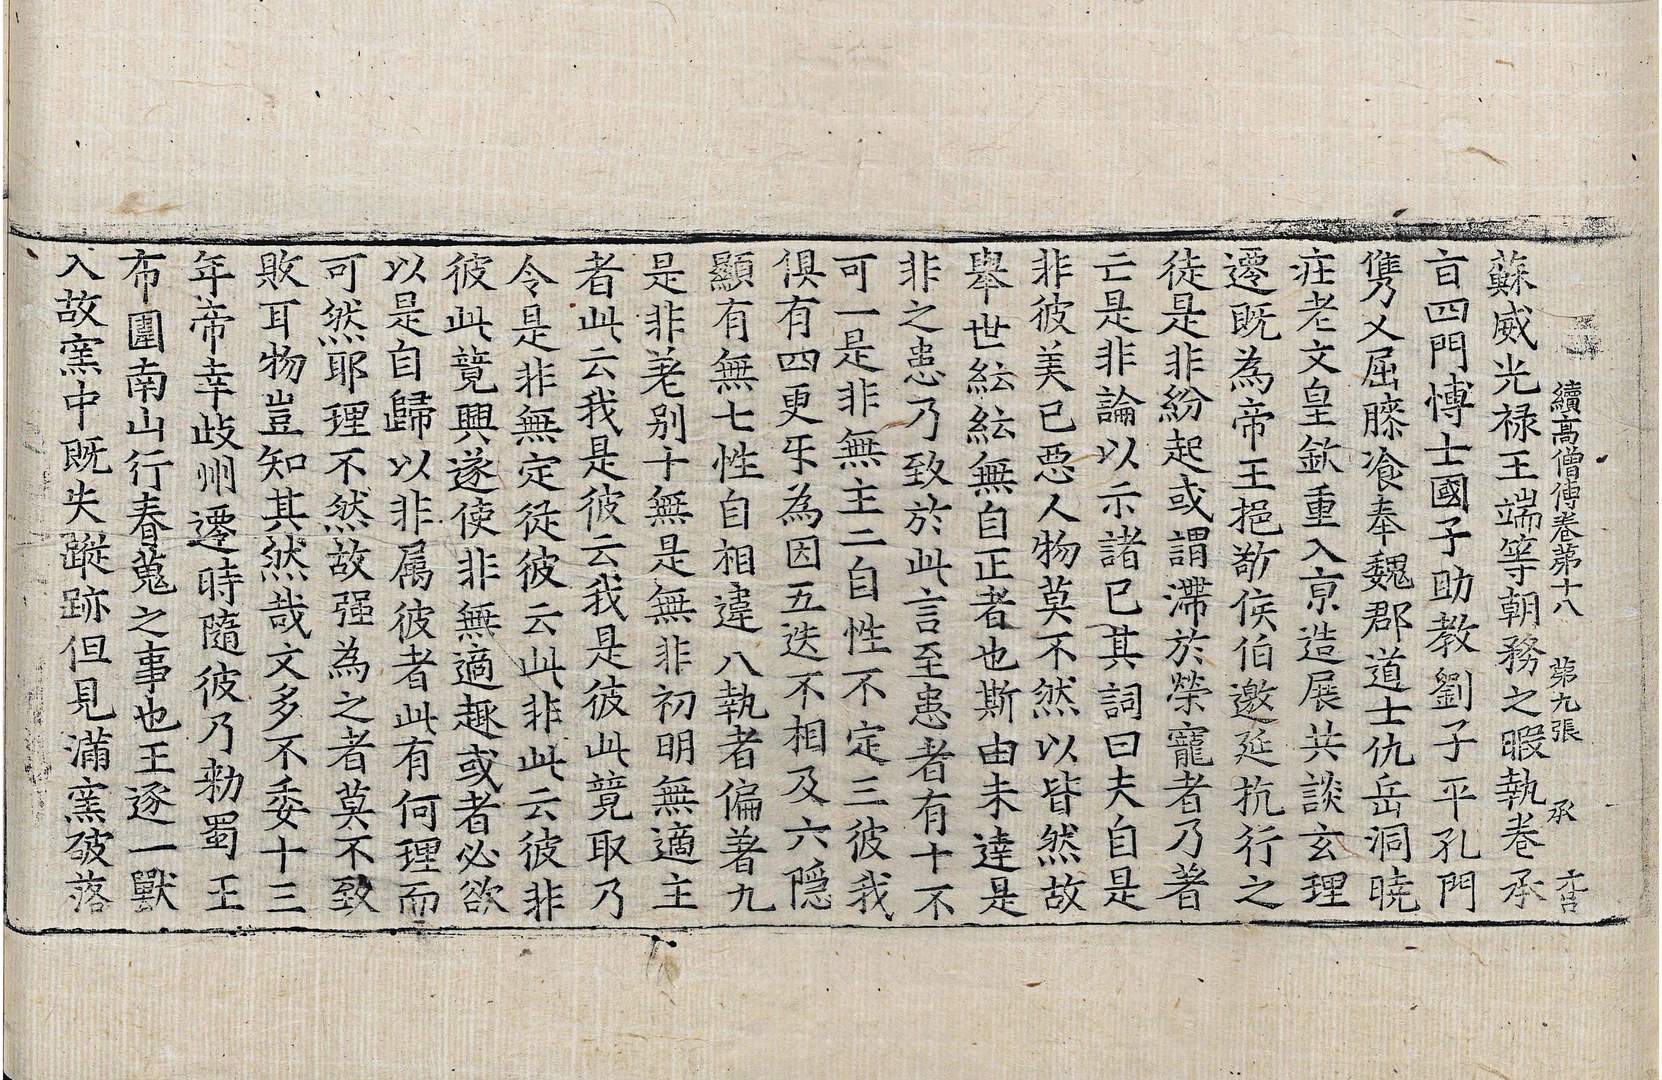 續高僧傳卷第十八 第九張 承
蘇威光禄王端等朝務之暇執卷承
㫖四門博士國子助教劉子平孔門
儁乂屈膝飡奉魏郡道士仇岳洞曉
庄老文皇欽重入京造展共談玄理
遷既為帝王挹敬侯伯邀延抗行之
徒是非紛起或謂滯於榮寵者乃著
亡是非論以示諸已其詞曰夫自是
非彼美已惡人物莫不然以皆然故
舉世紜紜無自正者也斯由未達是
非之患乃致於此言至患者有十不
可一是非無主二自性不定三彼我
俱有四更㸦為因五迭不相及六隱
顯有無七性自相違八執者偏著九
是非差别十無是無非初明無適主
者此云我是彼云我是彼此竟取乃
令是非無定從彼云此非此云彼非
彼此竟興遂使非無適趣或者必欲
以是自歸以非属彼者此有何理而
可然耶理不然故强為之者莫不致
敗耳物豈知其然哉文多不委十三
年帝幸歧州遷時隨彼乃勑蜀王
布圍南山行春蒐之事也王逐一獸
入故窯中既失蹤跡但見滿窯破落